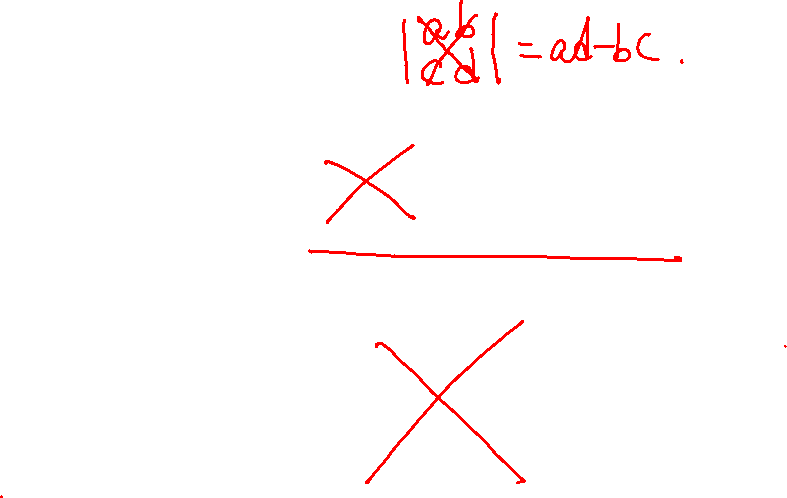 |a b
c d| = ad-bc.